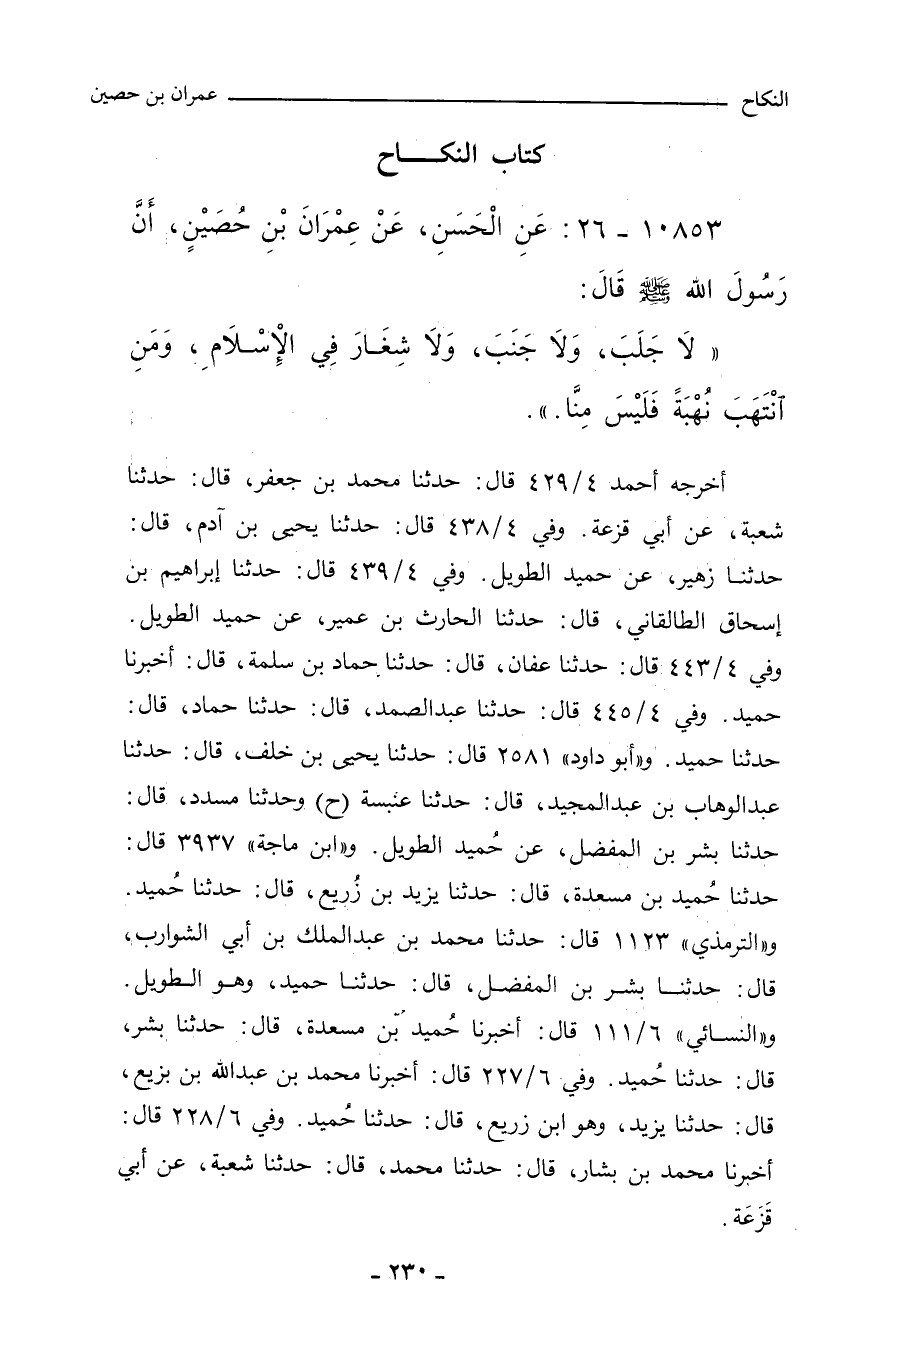 النكاح ــــــــــــــــــــــــــــــ عمران بن حصين
كتاب النكـــاح
١٠٨٥٣ ـ ٢٦ : عَنِ الْحَسَنِ، عَنْ عِمْرَانَ بْنِ حُصَيْنٍ، أَنَّ
رَسُولَ الله ﷺ قَالَ:
« لَا جَلَبَ، وَلَا جَنَبَ، وَلَا شِغَـارَ فِي الْإِسْـلَامِ ، وَمَنِ
آنْتَهَبَ نُهْبَةً فَلَيْسَ مِنَّا. ».
أخرجه أحمد ٤/ ٤٢٩ قال: حدثنا محمد بن جعفر، قال: حدثنا
شعبة، عن أبي قزعة. وفي ٤/ ٤٣٨ قال: حدثنا يحيى بن آدم، قال:
حدثنـا زهير، عن حميد الطويل. وفي ٤/ ٤٣٩ قال: حدثنا إبراهيم بن
إسحاق الطالقاني، قال: حدثنا الحارث بن عمير، عن حميد الطويل.
وفي ٤/ ٤٤٣ قال: حدثنا عفان، قال: حدثنا حماد بن سلمة، قال: أخبرنا
حميد. وفي ٤/ ٤٤٥ قال: حدثنا عبدالصمد، قال: حدثنا حماد، قال:
حدثنا حميد. و«أبو داود» ٢٥٨١ قال: حدثنا يحيى بن خلف، قال: حدثنا
عبدالوهاب بن عبدالمجيد، قال: حدثنا عنبسة (ح) وحدثنا مسدد، قال:
حدثنا بشر بن المفضل، عن حُميد الطويل. و«ابن ماجة» ٣٩٣٧ قال:
حدثنا حُميد بن مسعدة، قال: حدثنا يزيد بن زُريع، قال: حدثنا حُميد.
و«الترمذي» ١١٢٣ قال: حدثنا محمد بن عبدالملك بن أبي الشوارب،
قال: حدثنـا بشـر بن المفضـل، قال: حدثنـا حميد، وهـو الـطويل.
و«النسـائي» ٦/ ١١١ قال: أخبرنا حُميد بن مسعدة، قال: حدثنا بشر،
قال: حدثنا حُميد. وفي ٦/ ٢٢٧ قال: أخبرنا محمد بن عبدالله بن بزيع،
قال: حدثنا يزيد، وهو ابن زريع، قال: حدثنا حُميد. وفي ٦/ ٢٢٨ قال:
أخبرنا محمد بن بشار، قال: حدثنا محمد، قال: حدثنا شعبة، عن أبي
قَزَعَة .
ـ ٢٣٠ ـ